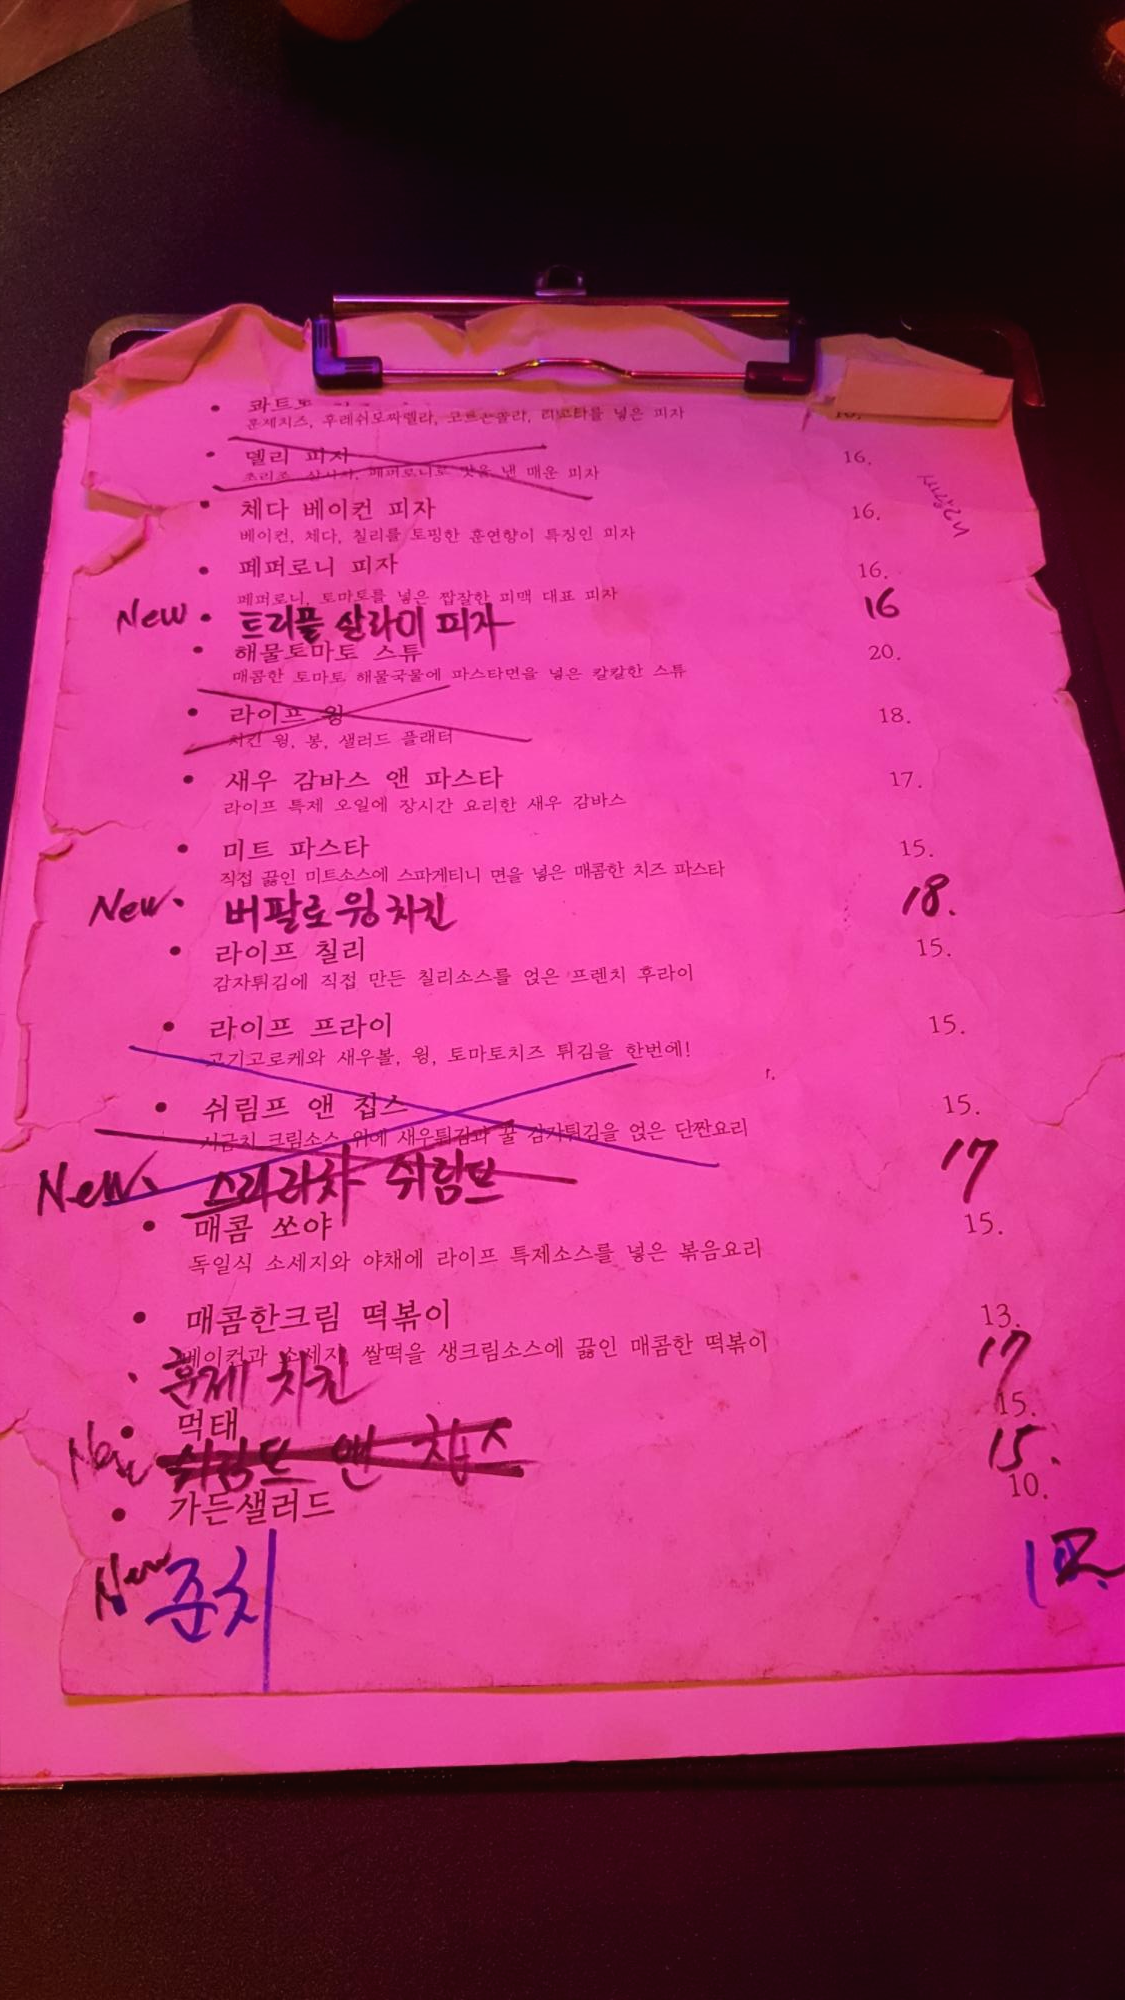 콰트로
훈제치즈, 후레쉬모짜렐라, 고르곤졸라, 리코타를 넣은 피자
델리 피자 16.
초리조, 살시챠, 페퍼로니로 맛을 낸 매운 피자
체다 베이컨 피자 16.
베이컨, 체다, 칠리를 토핑한 훈연향이 특징인 피자
페퍼로니 피자 16.
페퍼로니, 토마토를 넣은 짭잘한 피맥 대표 피자
New 트리플 살라미 피자 16
해물토마토 스튜 20.
매콤한 토마토 해물국물에 파스타면을 넣은 칼칼한 스튜
라이프 윙 18.
치킨 윙, 봉, 샐러드 플래터
새우 감바스 앤 파스타 17.
라이프 특제 오일에 장시간 요리한 새우 감바스
미트 파스타 15.
직접 끓인 미트소스에 스파게티니 면을 넣은 매콤한 치즈 파스타
New. 버팔로 윙 치킨 18.
라이프 칠리 15.
감자튀김에 직접 만든 칠리소스를 얹은 프렌치 후라이
라이프 프라이 15.
고기고로케와 새우볼, 윙, 토마토치즈 튀김을 한번에!
쉬림프 앤 칩스 15.
시금치 크림소스 위에 새우튀김과 꿀 감자튀김을 얹은 단짠요리
New. 스리라차 쉬림프 17
매콤 쏘야 15.
독일식 소세지와 야채에 라이프 특제소스를 넣은 볶음요리
매콤한크림 떡볶이 13.
베이컨과 소세지, 쌀떡을 생크림소스에 끓인 매콤한 떡볶이
훈제 치킨 17
먹태 15.
New 쉬림프 앤 칩스 15.
가든샐러드 10.
New 준치